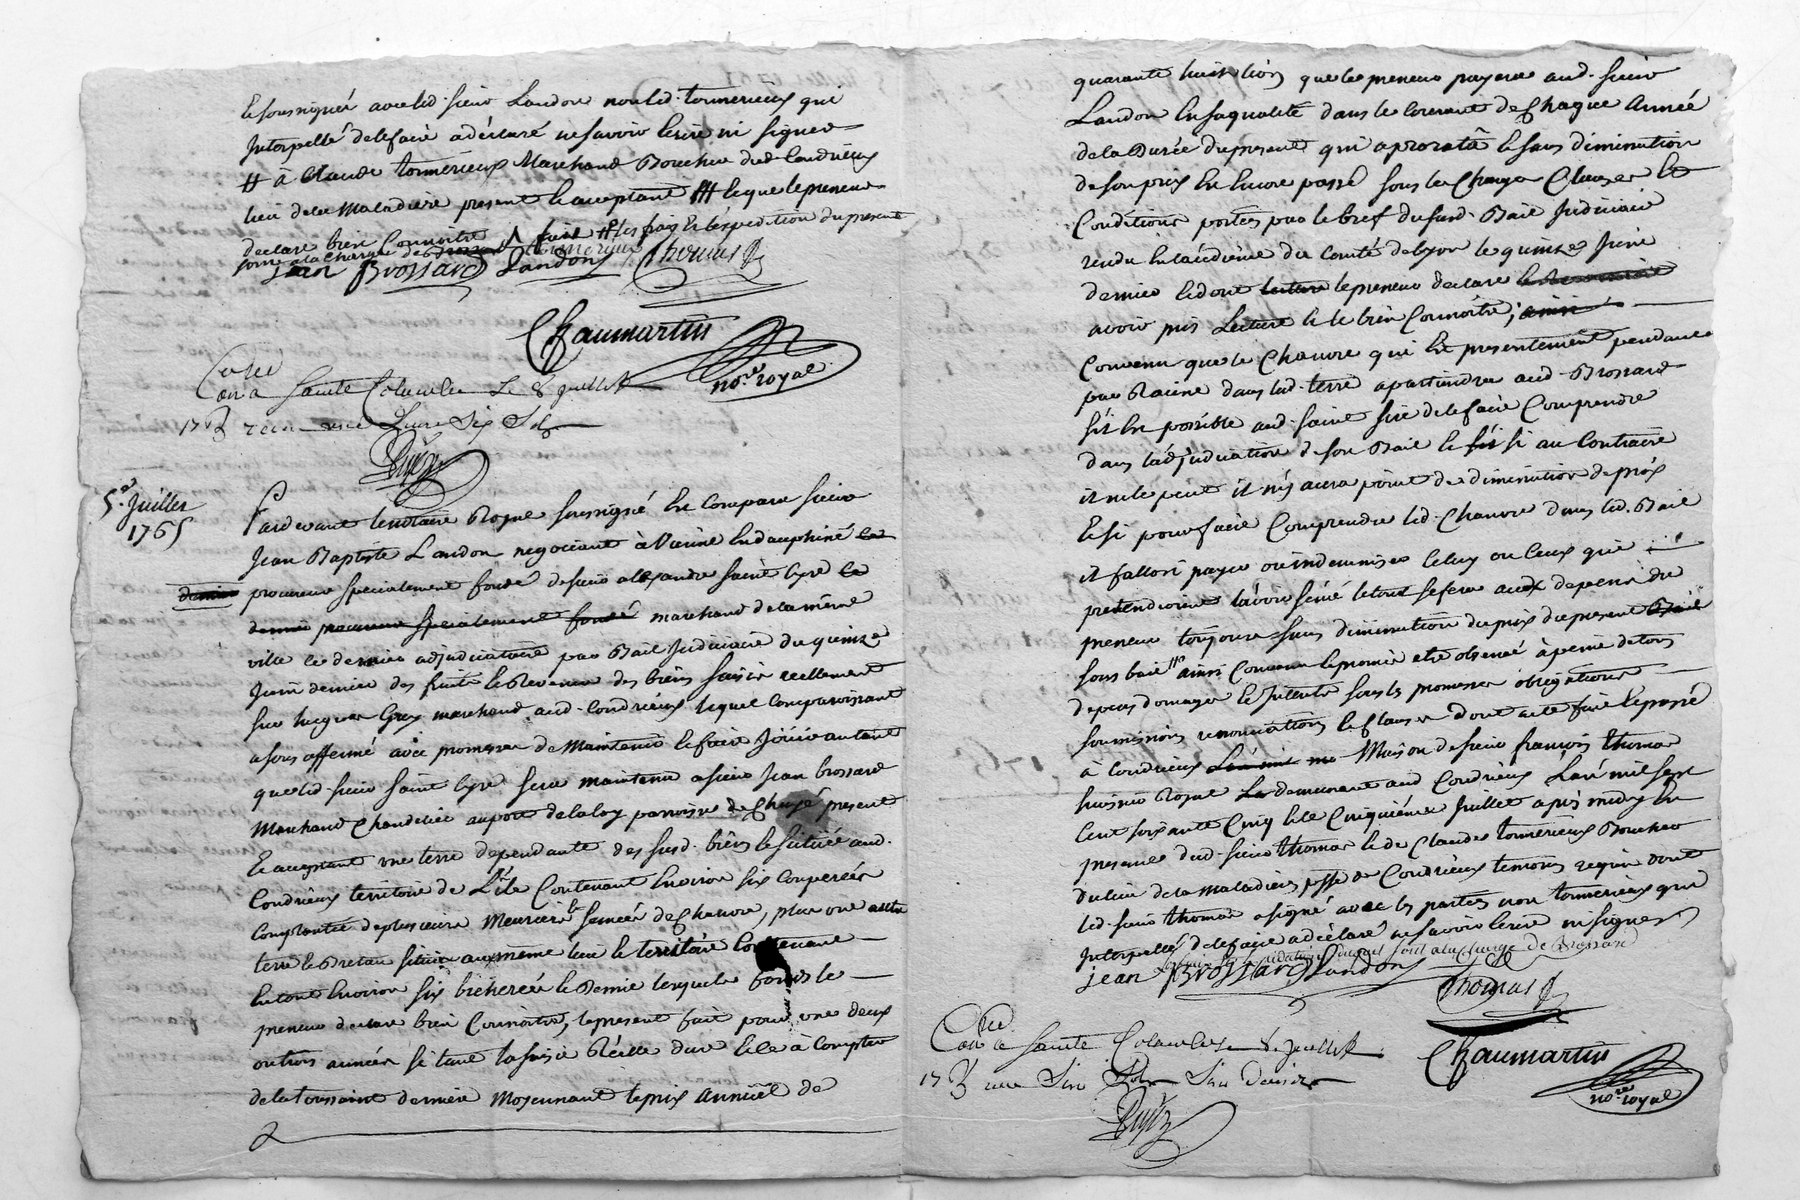 et soussigné avec led. sieur Landon non led. tonnerieux qui
Interpellé de le faire a déclaré ne savoir lecrire ni signer
# à Claude tonnerieux Marchand Boucher dud. Condrieux
lieu de la Maladiere present et acceptant ## le que le preneur
declare bien Connoitre fait # les frais et l'expedition du present
sont a la charge de Brossard
jean Brossard Landon Thomas
Chaumartin
no.re royal
Con.lé a Sainte Colombe le 8 juillet
17 recu Livre Six Sols
5.e Juillet
1765
Pardevant le notaire Royal soussigné est comparu sieur
Jean Baptiste Landon negociant à Vienne en dauphiné
procureur specialement fondé de sieur alexandre saint Cyre
dernier procureur specialement fondé marchand de la même
ville le dernier adjudicataire par Bail Judiciaire du quinze
Juin dernier des fruits et Revenus des biens saisis reellement
sur hugues Grey marchand aud. Condrieux lequel comparoissant
a sous affermé avec promesse de Maintenir et faire Jouir autant
que led. sieur saint Cyre sera maintenu a sieur Jean brossard
Marchand Chandelier au port de la loy paroisse de present
et acceptant une terre dependante des susd. biens et située aud.
Condrieux territoire de L'ile Contenant Environ six couperées
complantée de plusieurs Meuriers et semée de Chanvre, plus une autre
terre et Bretau située aux même lieu et territoire Contenant
en tout Environ six bicherées et Demie lesquels fonds le
preneur declare bien Connoitre, le present fait pour une deux
ou trois années si tant la saisie Réelle dure et le à Compter
de la toussaint derniere Moyennant le prix annuel de
quarante huit livres que le preneur payera aud. sieur
Landon En sa qualité dans le courant de Chaque Année
de la Durée du present qui a prorata et sans diminution
de son prix Est Encore passé sous les Charges Clauses et
Conditions portées par le bref du susd. Bail Judiciaire
rendu En l'audience du Comté de lyon le quinze Juin
dernier et dont lecture le preneur declare
avoir pris Lecture et le bien Connoitre;
Convenu que le Chanvre qui Est presentement pendant
par Racine dans lad. terre apartiendra aud. Brossard
s'il Est possible aud. saint Cire de le faire Comprendre
dans l'adjudication de son Bail et si au Contraire
il ne le peut il n'y aura point de diminution de prix
et si pour faire Comprendre led. Chanvre dans led. Bail
il falloit payer ou indemniser celuy ou ceux qui
pretendroient l'avoir semé le tout se fera aux depens du
preneur toujours sans diminution du prix du present Bail
sous bail ## ainsi Convenu et promis etre observé à peine de tous
depens domages et Interets sous les promesses obligations
soumissions renonciations et Clauses dont acte fait et passé
à Condrieux Maison de sieur françois thomas
huissier Royal demeurant aud. Condrieux L'an mil sept
cent soixante Cinq et le Cinquième Juillet après midy En
presence dud. sieur thomas et de Claude tonnerieux Boucher
du lieu de la Maladiere psse de Condrieux temoins requis dont
led. sieur thomas a signé avec les parties non tonnerieux qui
Interpellé de le faire a déclaré ne savoir lecrire ni signer
sont a la charge de Brossard
jean Brossard Landon
Thomas
Chaumartin
no.re royal
Con.lé a Sainte Colombe 8. juillet
17 Sols Six Deniers